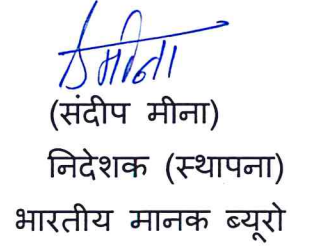 (संदीप मीना)
निदेशक (स्थापना)
भारतीय मानक ब्यूरो